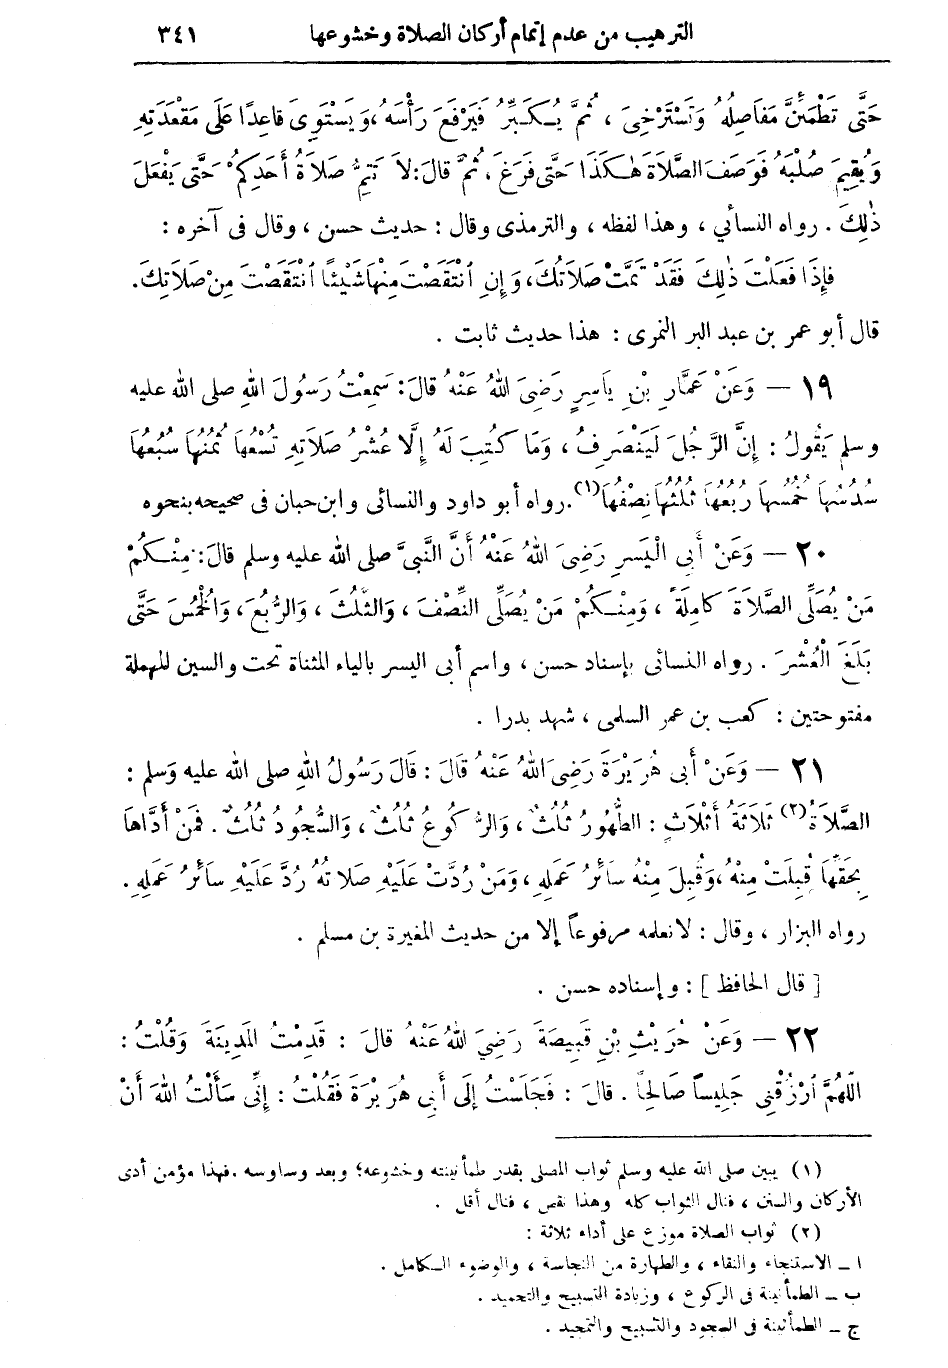 الترهيب من عدم إتمام أركان الصلاة وخشوعها ٣٤١
حَتَّى تَطْمَئِنَّ مَفَاصِلُهُ وَتَسْتَرْخِىَ ، ثُمَّ يُكَبِّرُ فَيَرْفَعَ رَأْسَهُ ، وَيَسْتَوِىَ قاعِدًا عَلَى مَقْعَدَتِهِ
وَيُقِيمَ صُلْبَهُ فَوَصَفَ الصَّلاَةَ هٰكَذَا حَتَّى فَرَغَ ، ثُمَّ قالَ: لاَ تَتِمُّ صَلاَةُ أَحَدِكُمْ حَتَّى يَفْعَلَ
ذٰلِكَ . رواه النسأئي ، وهذا لفظه ، والترمذى وقال : حديث حسن ، وقال فى آخره :
فَإِذَا فَعَلْتَ ذٰلِكَ فَقَدْ تَمَّتْ صَلاَتُكَ، وَإِنِ ٱنْتَقَصْتَ مِنْهَا شَيْئًا ٱنْتَقَصْتَ مِنْ صَلاَتِكَ.
قال أبو عمر بن عبد البر النمرى : هذا حديث ثابت .
١٩ — وَعَنْ عَمَّارِ بْنِ يَاسِرٍ رَضِىَ اللهُ عَنْهُ قالَ: سَمِعْتُ رَسُولَ اللهِ صلى الله عليه
وسلم يَقُولُ : إِنَّ الرَّجُلَ لَيَنْصَرِفُ ، وَمَا كُتِبَ لَهُ إِلَّا عُشْرُ صَلاَتِهِ تُسْعُهَا ثُمُنُهَا سُبُعُهَا
سُدُسُهَا خُمُسُهَا رُبُعُهَا ثُلُثُهَا نِصْفُهَا(١). رواه أبو داود والنسائى وابن حبان فى صحيحه بنحوه
٢٠ — وَعَنْ أَبِى الْيَسَرِ رَضِىَ اللهُ عَنْهُ أَنَّ النَّبىَّ صلى الله عليه وسلم قالَ: مِنْكُمْ
مَنْ يُصَلِّى الصَّلاَةَ كامِلَةً ، وَمِنْكُمْ مَنْ يُصَلِّى النِّصْفَ ، وَالثُّلُثَ ، وَالرُّبُعَ ، وَالْخُمُسَ حَتَّى
بَلَغَ الْعُشْرَ . رواه النسائى بإسناد حسن ، واسم أبى اليسر بالياء المثناة تحت والسين المهملة
مفتوحتين : كعب بن عمر السلمى ، شهد بدرا .
٢١ — وَعَنْ أَبى هُرَيْرَةَ رَضِىَ اللهُ عَنْهُ قَالَ : قَالَ رَسُولُ اللهِ صلى الله عليه وَسلم :
الصَّلاَةُ(٢) ثَلاَثَةُ أَثْلاَثٍ : الطُّهُورُ ثُلُثٌ ، وَالرُّكُوعُ ثُلُثٌ ، وَالسُّجُودُ ثُلُثٌ . فَمَنْ أَدَّاهَا
بِحَقِّهَا قُبِلَتْ مِنْهُ، وَقُبِلَ مِنْهُ سَائِرُ عَمَلِهِ ، وَمَنْ رُدَّتْ عَلَيْهِ صَلاَتُهُ رُدَّ عَلَيْهِ سَائِرُ عَمَلِهِ .
رواه البزار ، وقال : لا نعلمه مرفوعاً إلا من حديث المغيرة بن مسلم .
[ قال الحافظ ] : وإسناده حسن .
٢٢ — وَعَنْ حُرَيْثِ بْنِ قَبِيصَةَ رَضِيَ اللهُ عَنْهُ قالَ : قَدِمْتُ الْمَدِينَةَ وَقُلْتُ :
اللّٰهُمَّ ٱرْزُقْنِى جَلِيسًا صَالِحًا . قالَ : فَجَلَسْتُ إِلَى أَبِى هُرَيْرَةَ فَقُلْتُ : إِنِّى سَأَلْتُ اللهَ أَنْ
(١) يبين صلى الله عليه وسلم ثواب المصلى بقدر طمأنينته وخشوعه؛ وبعد وساوسه . فهذا مؤمن أدى
الأركان والسنن ، فنال الثواب كله وهذا نقص ، فنال أقل .
(٢) ثواب الصلاة موزع على أداء ثلاثة :
ا ــ الاستنجاء والنقاء ، والطهارة من النجاسة ، والوضوء الكامل .
ب ــ الطمأنينة فى الركوع ، وزيادة التسبيح والتحميد .
ج ــ الطمأنينة فى السجود والتسبيح والتمجيد .